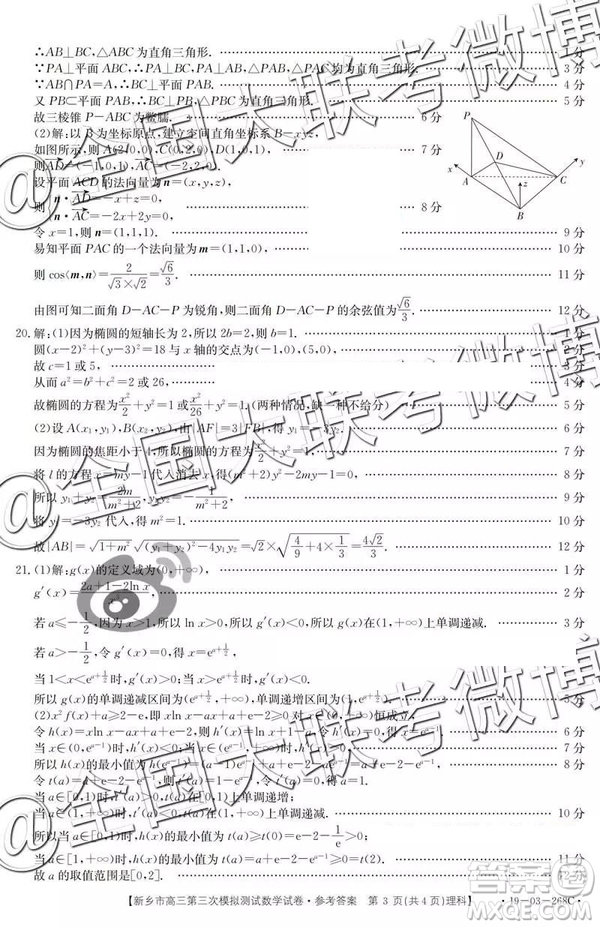 ∴AB⊥BC,△ABC为直角三角形. 1分
∵PA⊥平面ABC,∴PA⊥BC,PA⊥AB,△PAB,△PAC为直角三角形. 3分
∵AB∩PA=A,∴BC⊥平面PAB.
又PB⊂平面PAB,∴BC⊥PB,△PBC为直角三角形. 5分
故三棱锥P-ABC为鳖臑. 6分
(2)解:以B为坐标原点,建立空间直角坐标系B-xyz,
如图所示,则A(2,0,0),C(0,2,0),D(1,0,1), 7分
则AD=(-1,0,1),AC=(-2,2,0).
设平面ACD的法向量为n=(x,y,z),
则{n·AD=-x+z=0, n·AC=-2x+2y=0. 8分
令x=1, 9分
易知平面PAC的一个法向量为m=(1,1,0), 10分
则cos⟨m,n⟩=2/(√3×√2)=√6/3. 11分
由图可知二面角D-AC-P为锐角,则二面角D-AC-P的余弦值为√6/3. 12分
P
D
A
C
B
x
y
z
20.解:(1)因为椭圆的短轴长为2,所以2b=2,则b=1. 1分
圆(x-2)²+(y-3)²=18与x轴的交点为(-1,0),(5,0), 2分
故c=1或5, 3分
从而a²=b²+c²=2或26, 4分
故椭圆的方程为x²/2+y²=1或x²/26+y²=1.(两种情况,缺一种不给分) 5分
(2)设A(x₁,y₁),B(x₂,y₂),由|AF|=3|FB|,得y₁=-3y₂. 6分
因为椭圆的焦距小于4,所以椭圆的方程为x²/2+y²=1, 7分
将l的方程x=my-1代入消去x,得 8分
所以y₁+y₂=2m/(m²+2),y₁y₂=-1/(m²+2). 9分
将y₁=-3y₂代入,得m²=1, 10分
故|AB|=√(1+m²)√((y₁+y₂)²-4y₁y₂)=√2×√(4/9+4×1/3)=4√2/3. 12分
21.(1)解:g(x)的定义域为(0,+∞), 1分
g′(x)=(2a+1-2ln x) 2分
若a≤-1/2,因为x>1,所以ln x>0,所以g′(x)<0,所以g(x)在(1,+∞)上单调递减. 3分
若a>-1/2,令g′(x)=0,得x=e^(a+1/2),
当1<x<e^(a+1/2)时,g′(x)>0;当x>e^(a+1/2)时,g′(x)<0.
所以g(x)的单调递减区间为(e^(a+1/2),+∞),单调递增区间为(1,e^(a+1/2)). 5分
(2)x²f(x)+a≥2-e,即xln x-ax+a+e-2≥0 6分
令h(x)=xln x-ax+a+e-2,则h′(x)=ln x+1-a,令h′(x)=0,得x=e^(a-1). 7分
当x∈(0,e^(a-1))时,h′(x)<0;当x∈(e^(a-1),+∞)时,h′(x)>0.
所以h(x)的最小值为h(e^(a-1))=a+e-2-e^(a-1). 8分
令t(a)=a+e-2-e^(a-1),则t′(a)=1-e^(a-1),令t′(a)=0,得a=1. 9分
当a∈[0,1)时,t′(a)>0,t(a)在[0,1)上单调递增;
当a∈[1,+∞)时,t(a)在[1,+∞)上单调递减. 10分
所以当a∈[0,1)时,h(x)的最小值为t(a)≥t(0)=e-2-1/e>0;
当a∈[1,+∞)时,h(x)的最小值为t(a)=a+e-2-e^(a-1)≥0=t(2). 11分
故a的取值范围是[0,2]. 12分
【新乡市高三第三次模拟测试数学试卷·参考答案 第3页(共4页)理科】
·19-03-268C·
@全国大联考微博
@全国大联考微博
答案圈